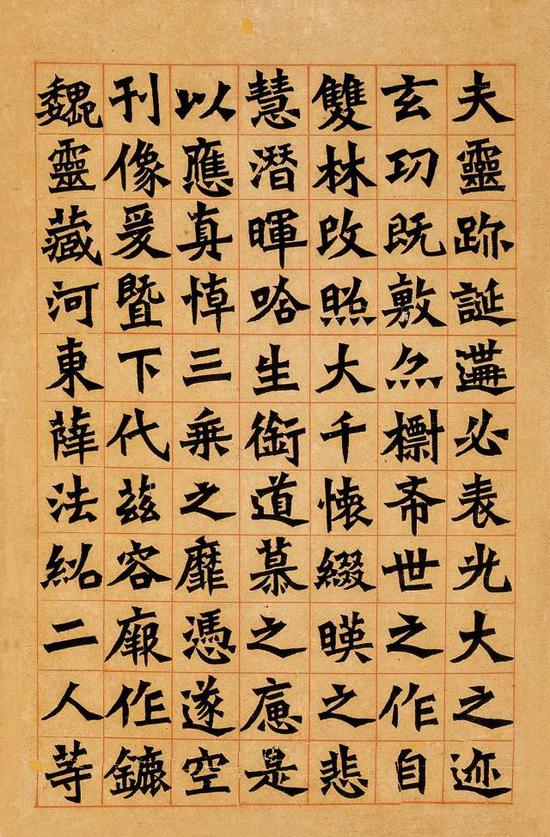 夫靈跡誕遘必表光大之迹
玄功既敷亦標希世之作自
雙林改照大千懷綴暎之悲
慧潛暉哈生銜道慕之𢠢是
以應真悼三乘之靡憑遂空
刊像爰暨下代茲容廄作鑣
魏靈藏河東薩法紹二人等